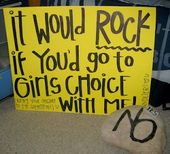 it Would ROCK
if You'd go to
GiRLS CHOiCE
WiTH ME!
NO